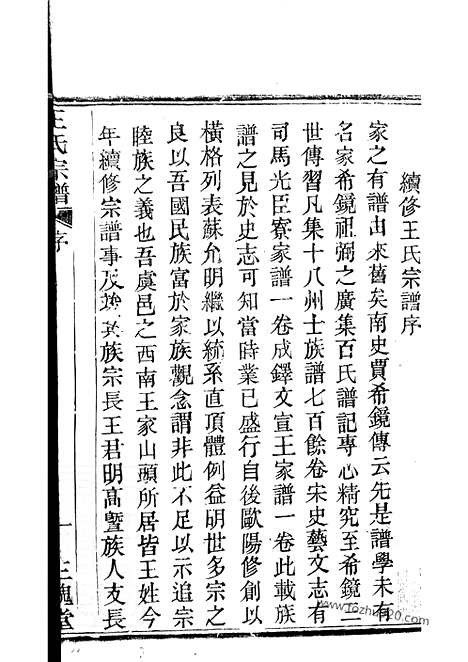 續修王氏宗譜序
家之有譜由來舊矣南史賈希鏡傳云先是譜學未有
名家希鏡祖弼之廣集百氏譜記專心精究至希鏡三
世傳習凡集十八州士族譜七百餘卷宋史藝文志有
司馬光臣寮家譜一卷成鐸文宣王家譜一卷此載族
譜之見於史志可知當時業已盛行自後歐陽修創以
橫格列表蘇允明繼以統系直頂體例益明世多宗之
良以吾國民族富於家族觀念謂非此不足以示追宗
睦族之義也吾虞邑之西南王家山頭所居皆王姓今
年續修宗譜事及竣其族宗長王君明高暨族人支長
王氏宗譜 序 一 三槐堂
www.10zhizhu20.com